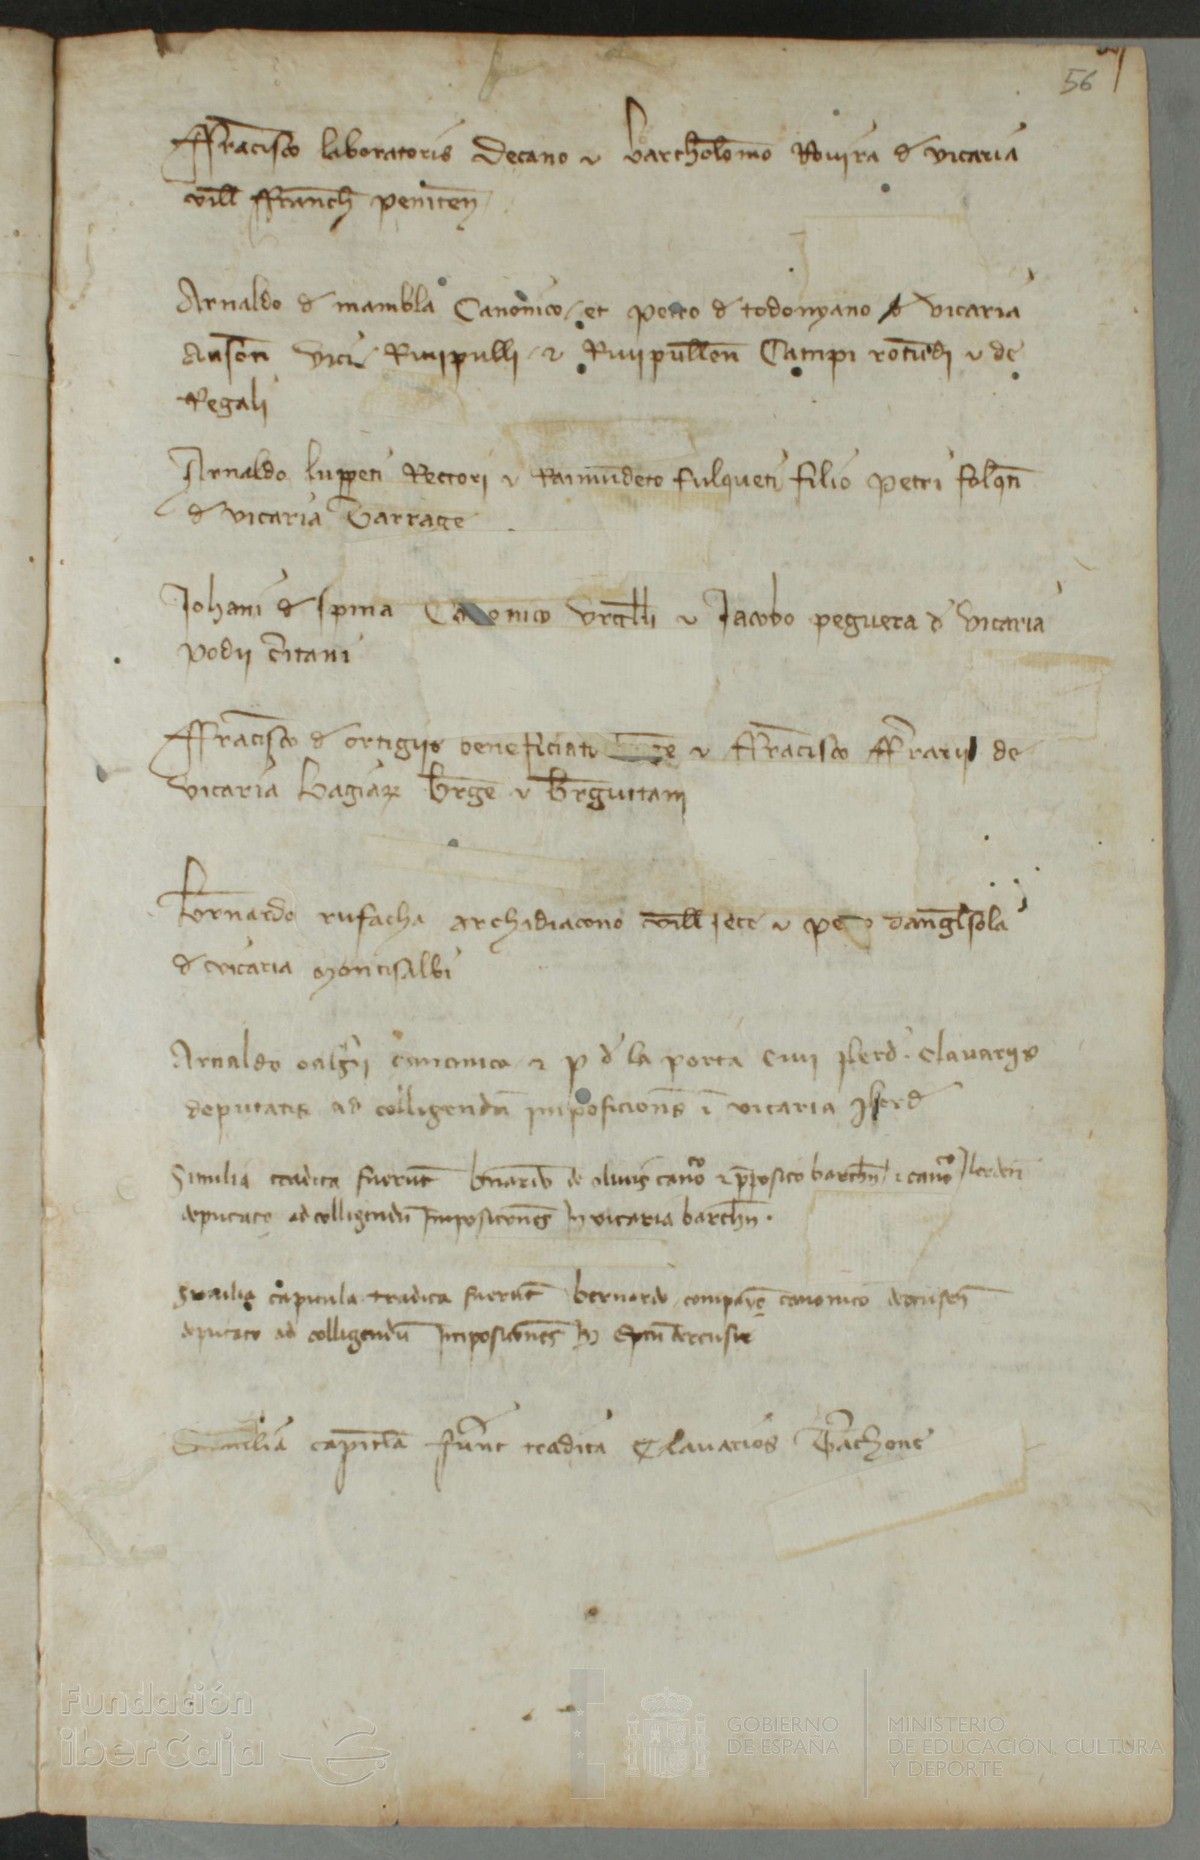 56
Ffrancisco laboratoris Decano & bartholomeo Rovira de vicaria
ville Ffranche penitens
Arnaldo de mambla Canonico / et petro de todonyano de vicaria
Ausone vici Rivipulli & Rivipullen Campi rotundi & de
Regali
Arnaldo luppeti Rectori & Raimundeto fulqueti filio petri folqti
de vicaria Tarrage
Johani de spina Canonico Urgelli & Jacobo peguera de Vicaria
podii Ceritani
Ffrancisco de ortigiis beneficiato & Ffrancisco Fferarii de
vicaria bagiarum berge & berguitani
Bernardo rufacha archadiacono & petro dangl'sola
de vicaria montisalbi
Arnaldo canonico & p de la porta civi Ilerd. clavariis
deputatis ad colligendum imposiciones in vicaria Ilerd
Similia tradita fuerunt bernardo de olivis canco & preposito barchn & canco Ilerden
deputato ad colligendum Imposiciones in vicaria barchn.
Similia capitula tradita fuerunt bernardo canonico dertusen
deputato ad colligendum Imposiciones in Eptu dertusen
Similia capitula fuerunt tradita Clavarios Terrachone
Fundación
iberCaja
GOBIERNO
DE ESPAÑA
MINISTERIO
DE EDUCACIÓN, CULTURA
Y DEPORTE